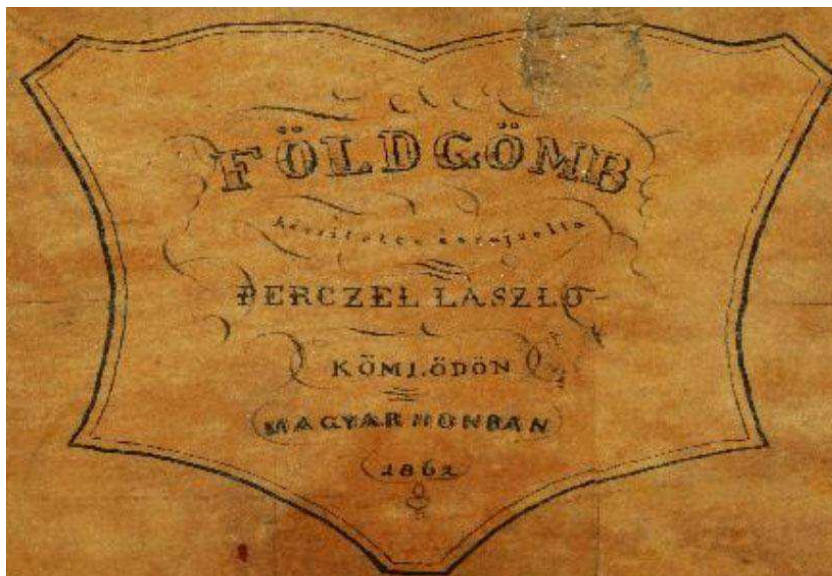 FÖLDGÖMB
készitette és rajzolta
PERCZEL LÁSZLÓ
KÖMLŐDÖN
MAGYARHONBAN
1862